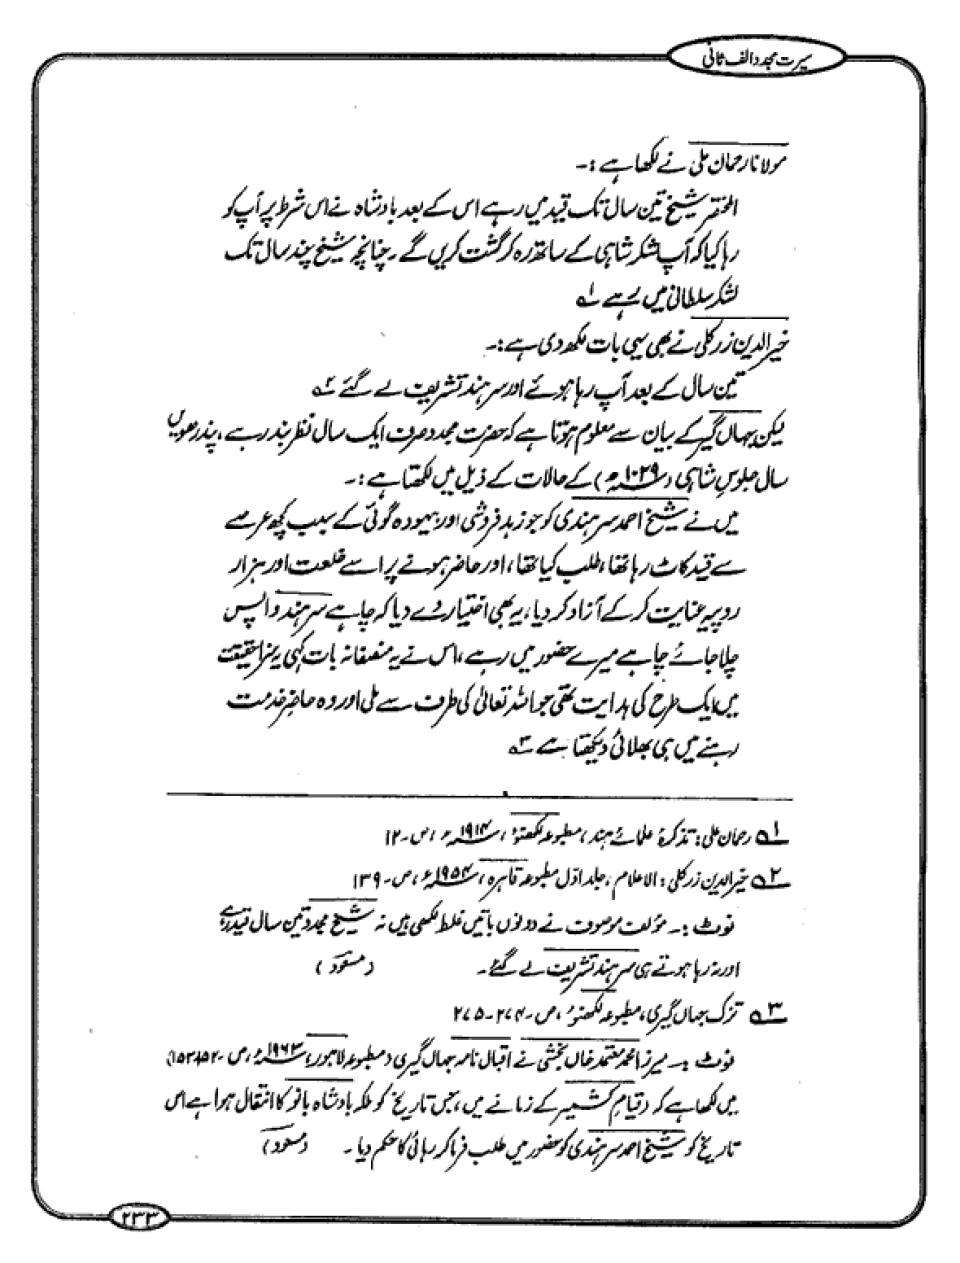 سیرت مجدد الف ثانی
مولانا رحمان علی نے لکھا ہے :۔
المختصر شیخ تین سال تک قید میں رہے اس کے بعد بادشاہ نے اس شرط پر آپ کو
رہا کیا کہ آپ لشکر شاہی کے ساتھ رہ کر گشت کریں گے ۔ چنانچہ شیخ چند سال تک
لشکر سلطانی میں رہے ۱؎
خیر الدین زرکلی نے بھی یہی بات لکھ دی ہے :۔
تین سال کے بعد آپ رہا ہوئے اور سرہند تشریف لے گئے ۲؎
لیکن جہاں گیر کے بیان سے معلوم ہوتا ہے کہ حضرت مجدد صرف ایک سال نظر بند رہے ، پندرھویں
سال جلوس شاہی (۱۰۲۹ھ) کے حالات کے ذیل میں لکھتا ہے :۔
میں نے شیخ احمد سرہندی کو جو زہد فروشی اور بیہودہ گوئی کے سبب کچھ عرصے
سے قید کاٹ رہا تھا ، طلب کیا تھا ، اور حاضر ہونے پر اسے خلعت اور ہزار
روپیہ عنایت کر کے آزاد کر دیا ، یہ بھی اختیار دے دیا کہ چاہے سرہند واپس
چلا جائے چاہے میرے حضور میں رہے ، اس نے یہ منصفانہ بات کہی یہ سزا حقیقت
میں ایک طرح کی ہدایت تھی جو اللہ تعالیٰ کی طرف سے ملی اور وہ حاضر خدمت
رہنے میں ہی بھلائی دیکھتا ہے ۳؎
۱؎ رحمان علی : تذکرۂ علمائے ہند ، مطبوعہ لکھنؤ ، ۱۹۱۴ء ، ص ۔ ۱۲
۲؎ خیر الدین زرکلی : الاعلام ، جلد اول مطبوعہ قاہرہ ، ۱۹۵۴ء ، ص ۔ ۱۳۹
نوٹ :۔ مؤلف موصوف نے دونوں باتیں غلط لکھی ہیں نہ شیخ مجدد تین سال قید رہے
اور نہ رہا ہوتے ہی سرہند تشریف لے گئے ۔ (مسعود)
۳؎ تزک جہاں گیری ، مطبوعہ لکھنؤ ، ص ۔ ۲۷۴ ۔ ۲۷۵
نوٹ :۔ میرزا محمد معتمد خاں بخشی نے اقبال نامہ جہاں گیری (مطبوعہ لاہور ، ۱۹۶۳ء ، ص ۔ ۱۵۲، ۱۵۳)
میں لکھا ہے کہ (قیام کشمیر کے زمانے میں ، جس تاریخ کو ملکہ بادشاہ بانو کا انتقال ہوا ہے اس
تاریخ کو شیخ احمد سرہندی کو حضور میں طلب فرما کر رہائی کا حکم دیا ۔ (مسعود)
۲۳۳